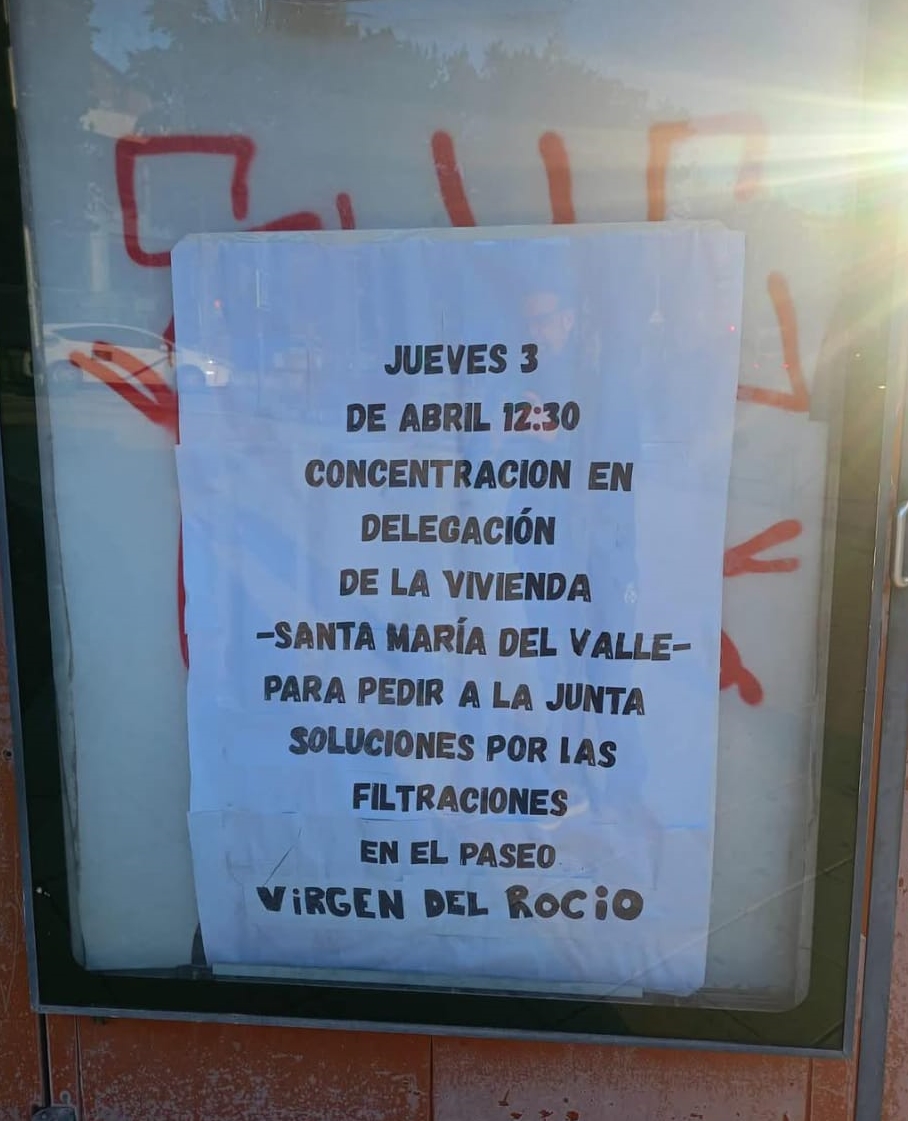 JUEVES 3
DE ABRIL 12:30
CONCENTRACION EN
DELEGACIÓN
DE LA VIVIENDA
-SANTA MARÍA DEL VALLE-
PARA PEDIR A LA JUNTA
SOLUCIONES POR LAS
FILTRACIONES
EN EL PASEO
ViRGEN DEL ROCiO